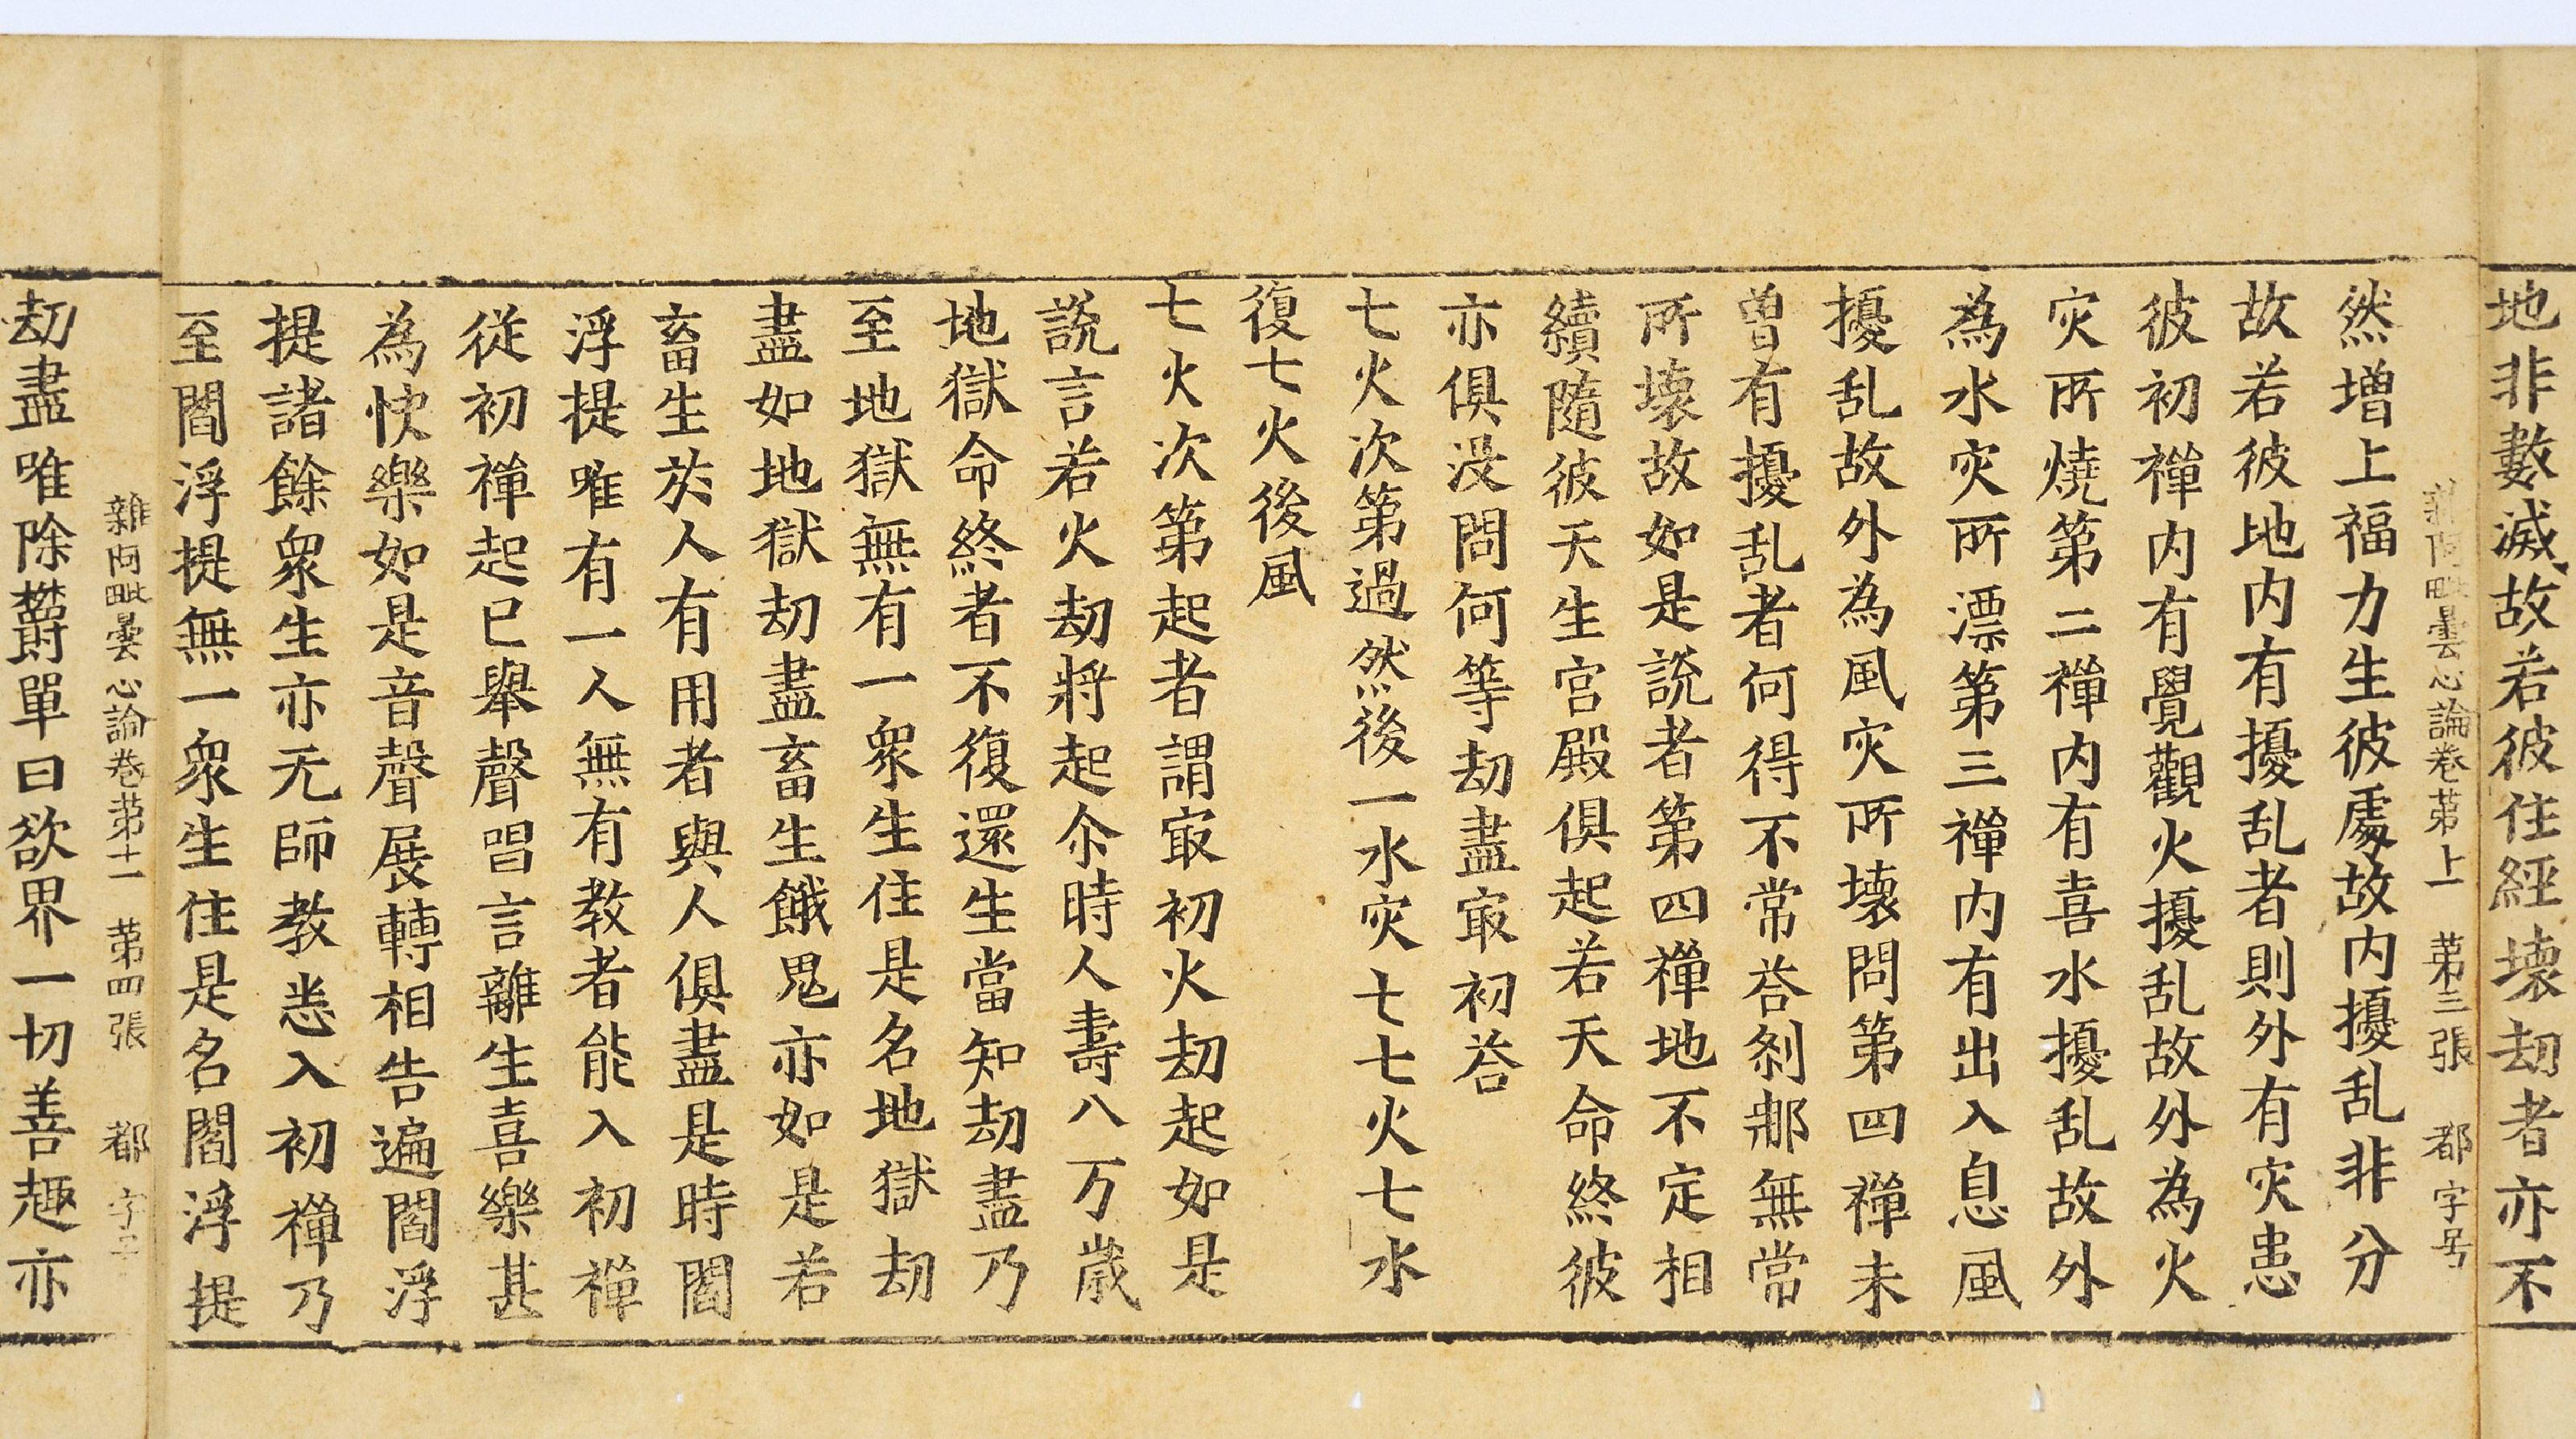 地非數滅故若彼住經壞劫者亦不
雜阿毗曇心論卷苐十一 苐三張 都字号
然增上福力生彼處故内擾乱非分
故若彼地内有擾乱者則外有灾患
彼初禪内有覺觀火擾乱故外為火
灾所燒第二禪内有喜水擾乱故外
為水灾所漂第三禪内有出入息風
擾乱故外為風灾所壞問第四禪未
曾有擾乱者何得不常荅剎那無常
所壞故如是說者第四禪地不定相
續隨彼天生宮殿俱起若天命終彼
亦俱没問何等劫盡㝡初荅
七火次第過然後一水灾七七火七水
復七火後風
七火次第起者謂㝡初火劫起如是
說言若火劫將起尒時人壽八万歲
地獄命終者不復還生當知劫盡乃
至地獄無有一衆生住是名地獄劫
盡如地獄劫盡畜生餓鬼亦如是若
畜生於人有用者與人俱盡是時閻
浮提唯有一人無有教者能入初禪
從初禪起已舉聲唱言離生喜樂甚
為快樂如是音聲展轉相告遍閻浮
提諸餘衆生亦无師教恙入初禪乃
至閻浮提無一衆生住是名閻浮提
雜阿毗曇心論卷苐十一 苐四張 都字号
劫盡唯除欝單曰欲界一切善趣亦